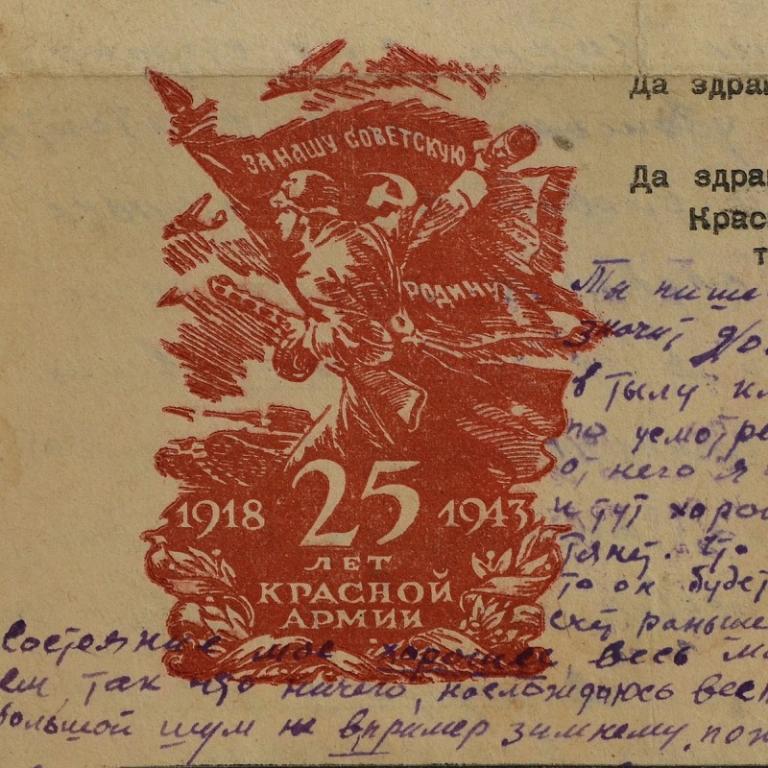 Да здрав
Да здрав
Крас
т
ЗА НАШУ СОВЕТСКУЮ
РОДИНУ!
1918 25 1943
ЛЕТ
КРАСНОЙ
АРМИИ
Ты пише
значит
в тылу
по усмотре
от него я
и тут хорош
тянет. Що
то он будет
раньше
Состояние мое хорошее, весь
ем, так что ничего, наслаждаюсь весн
большой шум не впример зимнему, пож